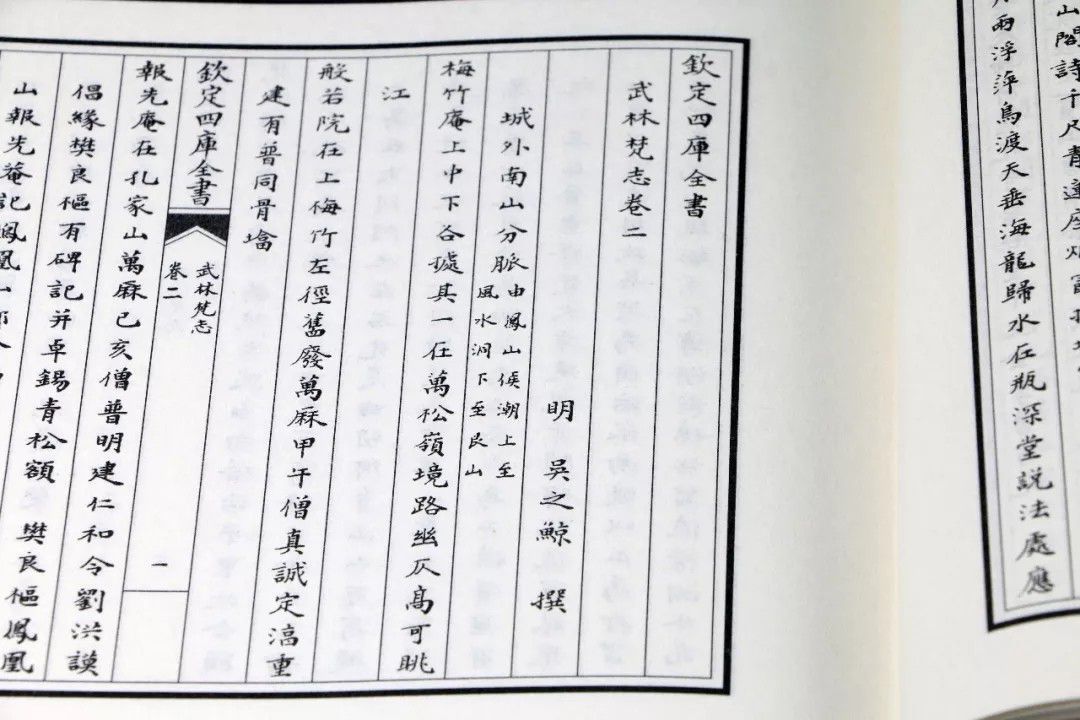 山閣詩千尺青蓮座
雨浮萍鳥渡天垂海龍歸水在瓶深堂説法處應
欽定四庫全書
武林梵志卷二
明 吳之鯨 撰
城外南山分脈由鳳山候潮上至
風水洞下至艮山
梅竹庵上中下各據其一在萬松嶺境路幽仄高可眺
江
般若院在上梅竹左徑舊廢萬厤甲午僧真誠定滈重
建有普同骨墖
欽定四庫全書
武林梵志
卷二
一
報先庵在孔家山萬厤己亥僧普明建仁和令劉洪謨
倡緣樊良樞有碑記并卓錫青松額 樊良樞鳳凰
山報先菴記鳳凰山